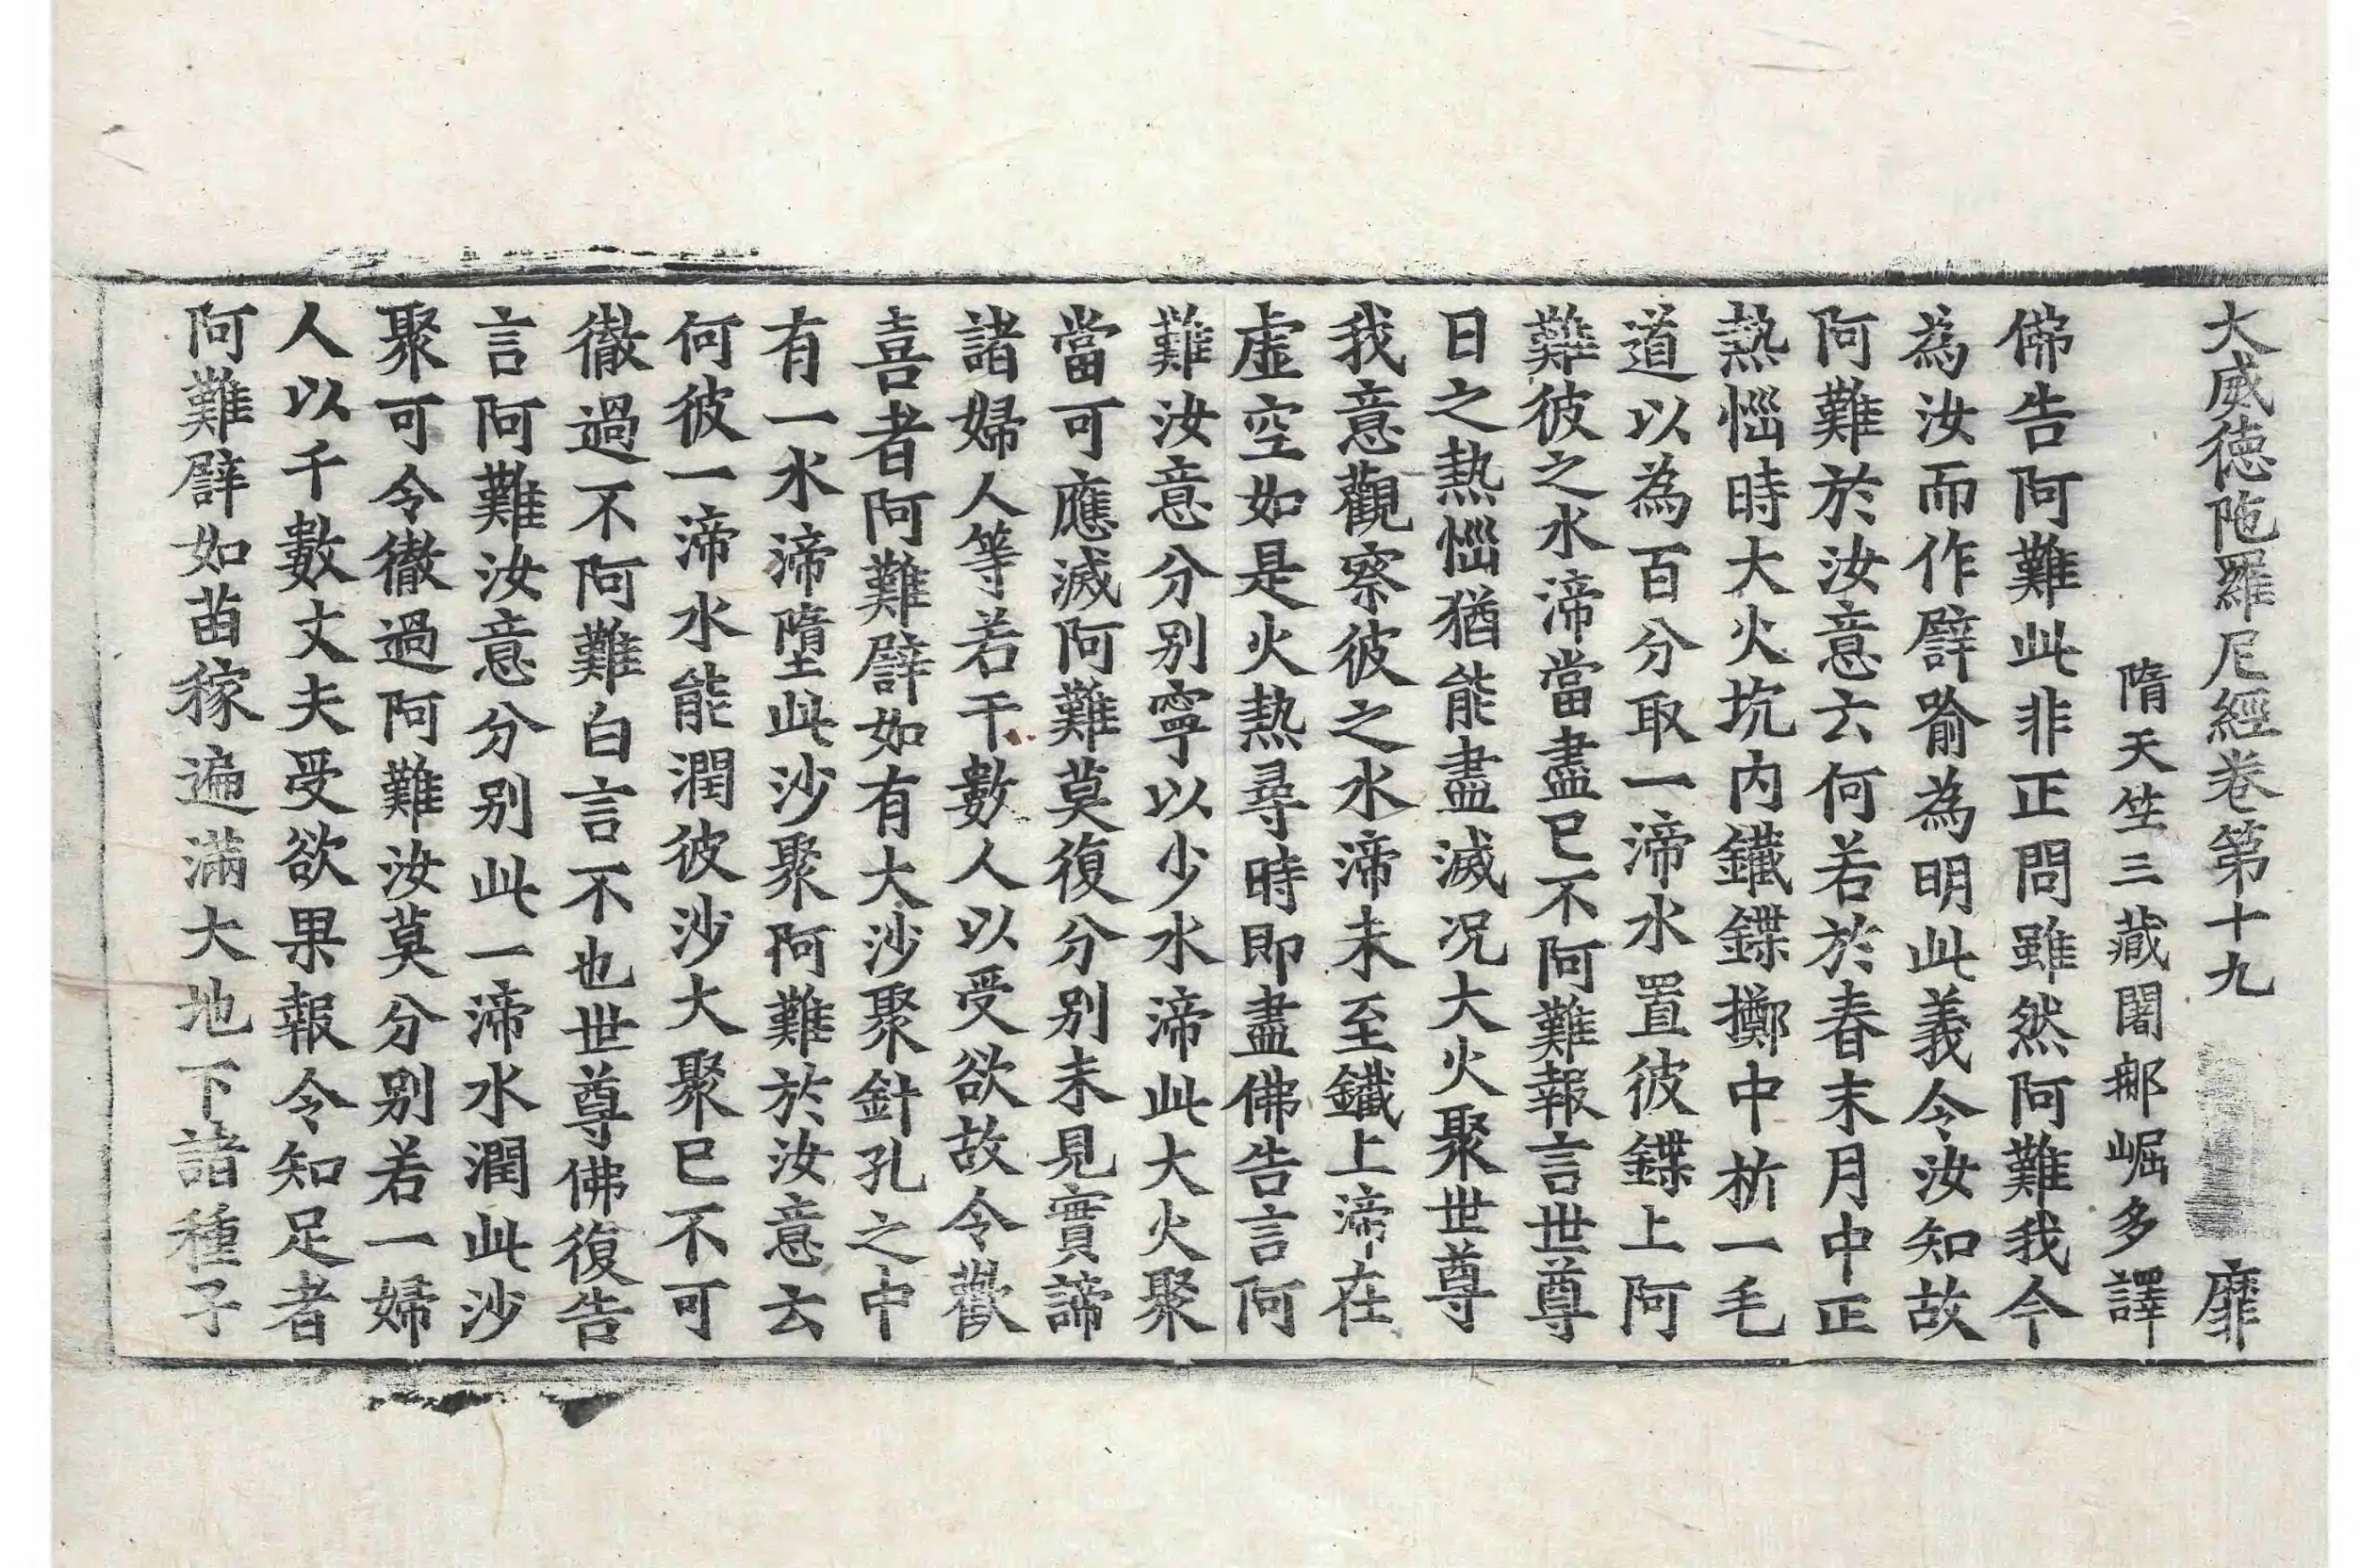 大威徳陁羅尼經卷第十九 靡
隋天竺三藏闍那崛多譯
佛告阿難此非正問雖然阿難我今
為汝而作譬喻為明此義令汝知故
阿難於汝意云何若於春末月中正
熱惱時大火坑内鐵鍱擲中析一毛
道以為百分取一渧水置彼鍱上阿
難彼之水渧當盡已不阿難報言世尊
日之熱惱猶能盡滅况大火聚世尊
我意觀察彼之水渧未至鐵上渧在
虛空如是火熱尋時即盡佛告言阿
難汝意分别寧以少水渧此大火聚
當可應滅阿難莫復分别未見實諦
諸婦人等若干數人以受欲故令歡
喜者阿難譬如有大沙聚針孔之中
有一水渧墮此沙聚阿難於汝意云
何彼一渧水能潤彼沙大聚已不可
徹過不阿難白言不也世尊佛復告
言阿難汝意分别此一渧水潤此沙
聚可令徹過阿難汝莫分别若一婦
人以千數丈夫受欲果報令知足者
阿難譬如苗稼遍滿大地下諸種子